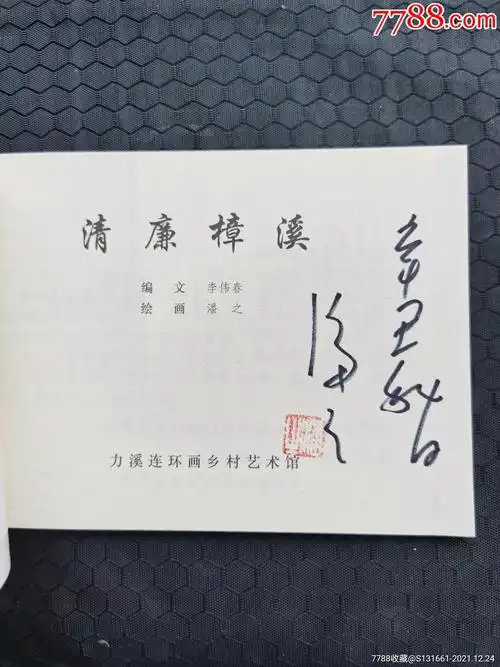 7788.com
清廉樟溪
编 文 李伟春
绘 画 潘 之
力溪连环画乡村艺术馆
辛丑秋日
潘之
7788收藏@S131661-2021.12.24